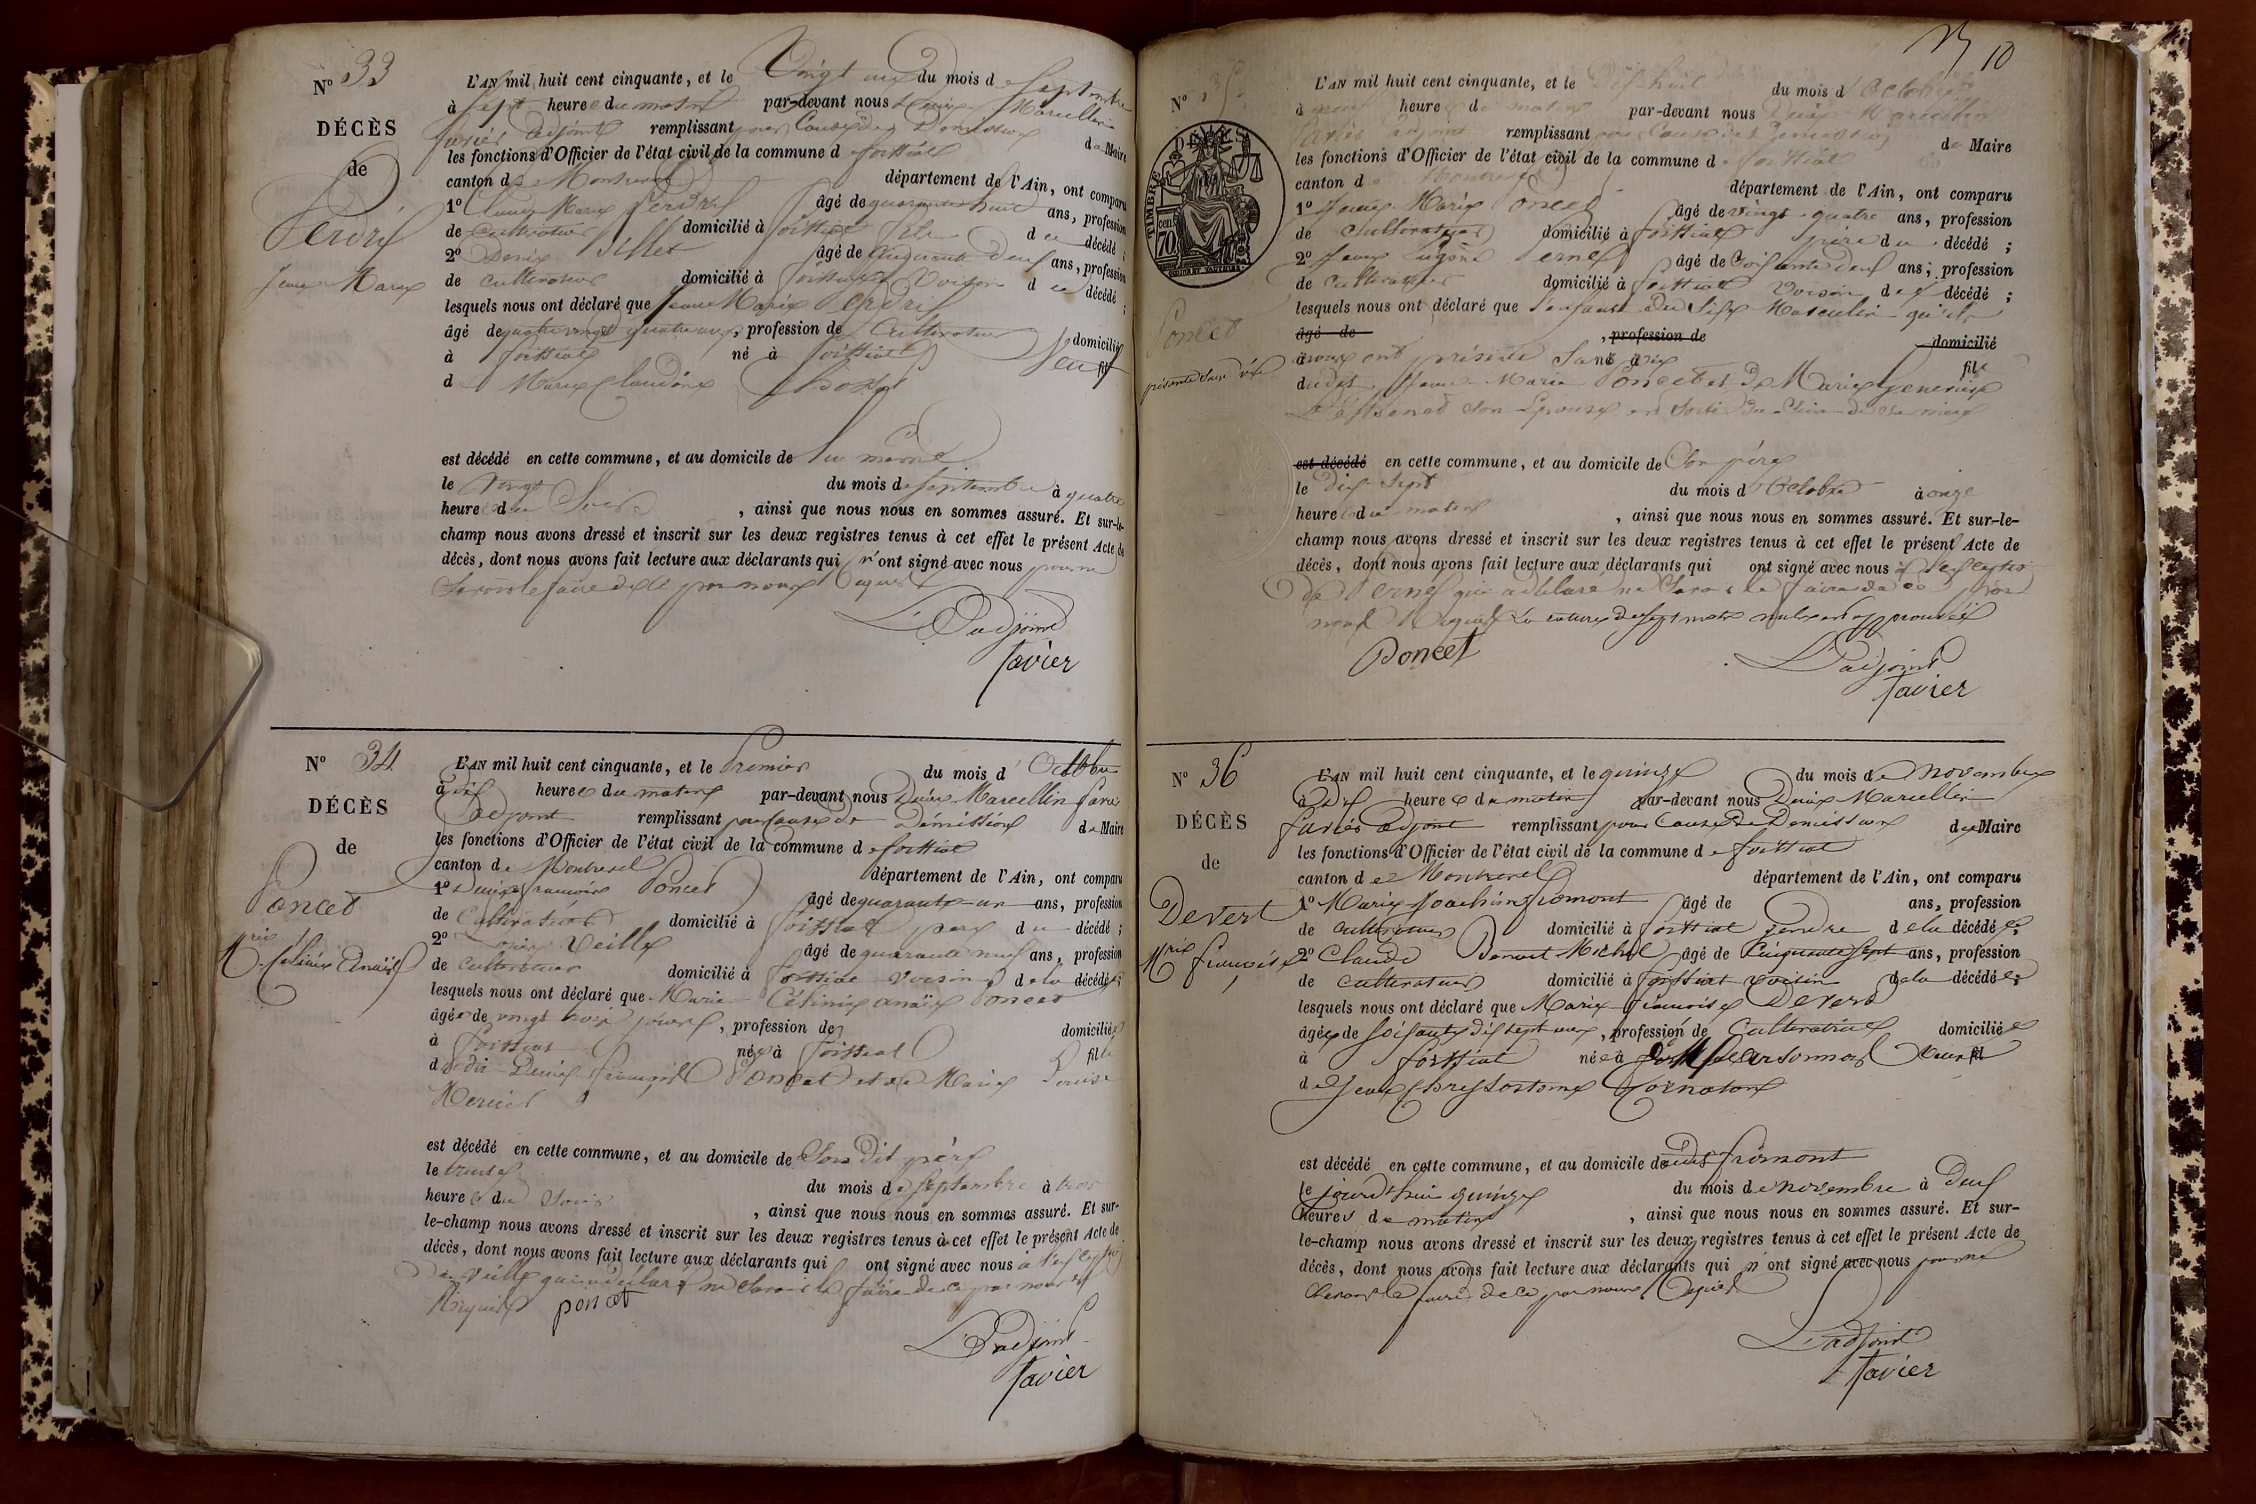 Nº 33
DÉCÈS
de
Perdrix
Jean Marie
L'AN mil huit cent cinquante, et le Vingt un du mois de Septembre
à Sept heures du matin par-devant nous Denis Marcellin
favier adjoint remplissant pour Cause de Demission du Maire
les fonctions d'Officier de l'état civil de la commune de foissiat
canton de Montrevel département de l'Ain, ont comparu
1º Marie Perdrix âgé de quarante huit ans, profession
de Cultivateur domicilié à foissiat fils du décédé ;
2º Denis Billet âgé de Cinquante Deux ans, profession
de Cultivateur domicilié à foissiat Voisin du décédé ;
lesquels nous ont déclaré que Jean Marie Perdrix
âgé de quatre vingt quatre ans, profession de Cultivateur domicilié
à foissiat né à foissiat Veuf fil
de Marie Claudine
est décédé en cette commune, et au domicile de lui même
le Vingt du mois de Septembre à quatre
heures du Soir, ainsi que nous nous en sommes assuré. Et sur-le-
champ nous avons dressé et inscrit sur les deux registres tenus à cet effet le présent Acte de
décès, dont nous avons fait lecture aux déclarants qui n'ont signé avec nous pour ne
Savoir le faire de ce par nous Requis
L'adjoint
favier
Nº 34
DÉCÈS
de
Poncet
Mrie Celinie Anaïs
L'AN mil huit cent cinquante, et le Premier du mois d'Octobre
à dix heures du matin par-devant nous Denis Marcellin favier
adjoint remplissant pour Cause de Démission du Maire
les fonctions d'Officier de l'état civil de la commune de foissiat
canton de Montrevel département de l'Ain, ont comparu
1º Denis françois Poncet âgé de quarante un ans, profession
de Cultivateur domicilié à foissiat père du décédé ;
2º Veille âgé de quarante neuf ans, profession
de Cultivateur domicilié à foissiat voisin de la décédée ;
lesquels nous ont déclaré que Marie Célinie anaïs Poncet
âgée de vingt trois jours, profession de domiciliée
à foissiat née à foissiat fille
du dit Denis françois Poncet et de Marie Louise
Mercier
est décédé en cette commune, et au domicile de Son Dit père
le trente du mois de Septembre à trois
heures du Soir, ainsi que nous nous en sommes assuré. Et sur-
le-champ nous avons dressé et inscrit sur les deux registres tenus à cet effet le présent Acte de
décès, dont nous avons fait lecture aux déclarants qui ont signé avec nous à l'exception
de Veille qui a déclaré ne Savoir le faire de ce par nous
Requis poncet
L'adjoint
favier
10
Nº 35
TIMBRE
70
Poncet
présenté Sans vie
L'AN mil huit cent cinquante, et le Dix huit du mois d'Octobre
à heures du matin par-devant nous Denis Marcellin
favier adjoint remplissant pour Cause de Demission du Maire
les fonctions d'Officier de l'état civil de la commune de foissiat
canton de Montrevel département de l'Ain, ont comparu
1º Jean Marie Poncet âgé de vingt quatre ans, profession
de Cultivateur domicilié à foissiat père du décédé ;
2º Jean Pernet âgé de Soixante deux ans, profession
de Cultivateur domicilié à foissiat Voisin du décédé ;
lesquels nous ont déclaré que l'enfant du Sexe Masculin qu'ils
âgé de , profession de domicilié
à nous ont présenté Sans né à vie fils
dudit Jean Marie Poncet et de Marie
son Epouse est Sorti du Sein de Sa mère
est décédé en cette commune, et au domicile de Son père
le Dix Sept du mois d'Octobre à onze
heures du matin, ainsi que nous nous en sommes assuré. Et sur-le-
champ nous avons dressé et inscrit sur les deux registres tenus à cet effet le présent Acte de
décès, dont nous avons fait lecture aux déclarants qui ont signé avec nous à l'exception
de Pernet qui a déclaré ne Savoir le faire de ce par
nous Requis La rature de sept mots nuls est approuvée
Poncet
L'adjoint
favier
Nº 36
DÉCÈS
de
Devert
Mrie françoise
L'AN mil huit cent cinquante, et le quinze du mois de novembre
à Dix heures du matin par-devant nous Denis Marcellin
favier adjoint remplissant pour Cause de Demission du Maire
les fonctions d'Officier de l'état civil de la commune de foissiat
canton de Montrevel département de l'Ain, ont comparu
1º Marie Joachim fromont âgé de ans, profession
de Cultivateur domicilié à foissiat gendre de la décédée ;
2º Claude Benoit Michel âgé de Cinquante Sept ans, profession
de Cultivateur domicilié à foissiat voisin de la décédée ;
lesquels nous ont déclaré que Marie françoise Devert
âgée de Soixante dix sept ans, profession de Cultivatrice domiciliée
à foissiat née à Veuve fil
de Jean Chrysostome Cornaton
est décédé en cette commune, et au domicile dudit fromont
le jourd'hui quinze du mois de novembre à Deux
heures du matin, ainsi que nous nous en sommes assuré. Et sur-
le-champ nous avons dressé et inscrit sur les deux registres tenus à cet effet le présent Acte de
décès, dont nous avons fait lecture aux déclarants qui n'ont signé avec nous pour ne
Savoir le faire de ce par nous Requis
L'adjoint
favier